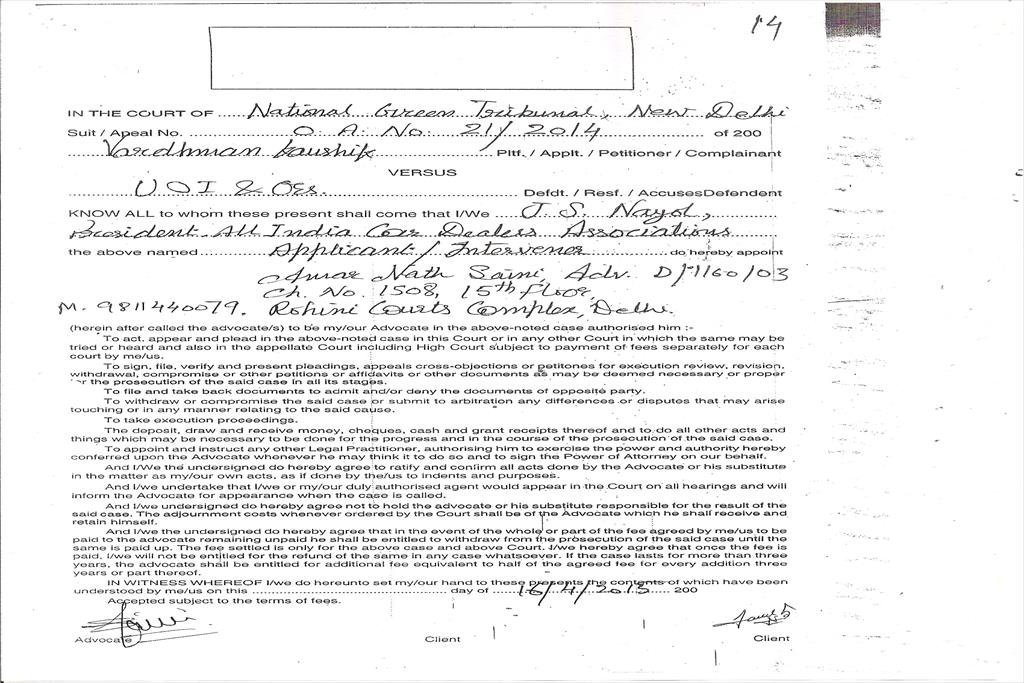 14
IN THE COURT OF National Green Tribunal, New Delhi
Suit / Apeal No. O. A. No. 21/2014 of 200
Vardhman Kaushik Pltf. / Applt. / Petitioner / Complainant
VERSUS
U O I & Ors. Defdt. / Resf. / AccusesDefendent
KNOW ALL to whom these present shall come that I/We J. S. Nayol,
President All India Car Dealers Associations
the above named Applicant / Intervener do hereby appoint
Amar Nath Saini, Adv. D/1160/03
Ch. No. 1508, 15th Floor,
M. 9811440079. Rohini Courts Complex, Delhi.
(herein after called the advocate/s) to be my/our Advocate in the above-noted case authorised him :-
To act, appear and plead in the above-noted case in this Court or in any other Court in which the same may be
tried or heard and also in the appellate Court including High Court subject to payment of fees separately for each
court by me/us.
To sign, file, verify and present pleadings, appeals cross-objections or petitones for execution review, revision,
withdrawal, compromise or other petitions or affidavits or other documents as may be deemed necessary or proper
or the prosecution of the said case in all its stages.
To file and take back documents to admit and/or deny the documents of opposite party.
To withdraw or compromise the said case or submit to arbitration any differences or disputes that may arise
touching or in any manner relating to the said cause.
To take execution proceedings.
The deposit, draw and receive money, cheques, cash and grant receipts thereof and to do all other acts and
things which may be necessary to be done for the progress and in the course of the prosecution of the said case.
To appoint and instruct any other Legal Practitioner, authorising him to exercise the power and authority hereby
conferred upon the Advocate whenever he may think it to do so and to sign the Power of Attorney on our behalf.
And I/We the undersigned do hereby agree to ratify and confirm all acts done by the Advocate or his substitute
in the matter as my/our own acts, as if done by the/us to indents and purposes.
And I/we undertake that I/we or my/our duly authorised agent would appear in the Court on all hearings and will
inform the Advocate for appearance when the case is called.
And I/we undersigned do hereby agree not to hold the advocate or his substitute responsible for the result of the
said case. The adjournment costs whenever ordered by the Court shall be of the Advocate which he shall receive and
retain himself.
And I/we the undersigned do hereby agree that in the event of the whole or part of the fee agreed by me/us to be
paid to the advocate remaining unpaid he shall be entitled to withdraw from the prosecution of the said case until the
same is paid up. The fee settled is only for the above case and above Court. I/we hereby agree that once the fee is
paid, I/we will not be entitled for the refund of the same in any case whatsoever. If the case lasts for more than three
years, the advocate shall be entitled for additional fee equivalent to half of the agreed fee for every addition three
years or part thereof.
IN WITNESS WHEREOF I/we do hereunto set my/our hand to these presents the contents of which have been
understood by me/us on this day of 16/4/2015 200
Accepted subject to the terms of fees.
Advocate Client Client